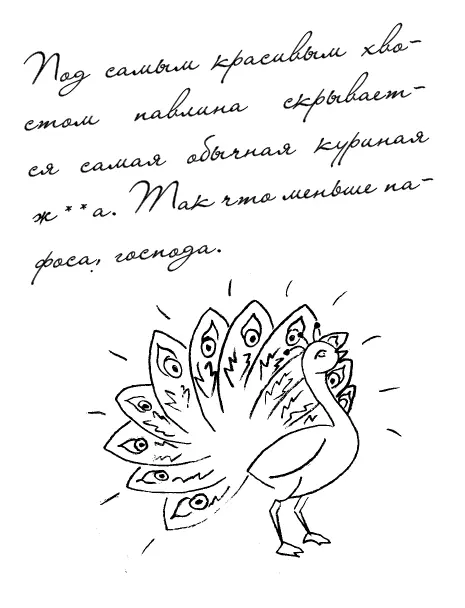 Под самым красивым хво-
стом павлина скрывает-
ся самая обычная куриная
ж**а. Так что меньше па-
фоса, господа.